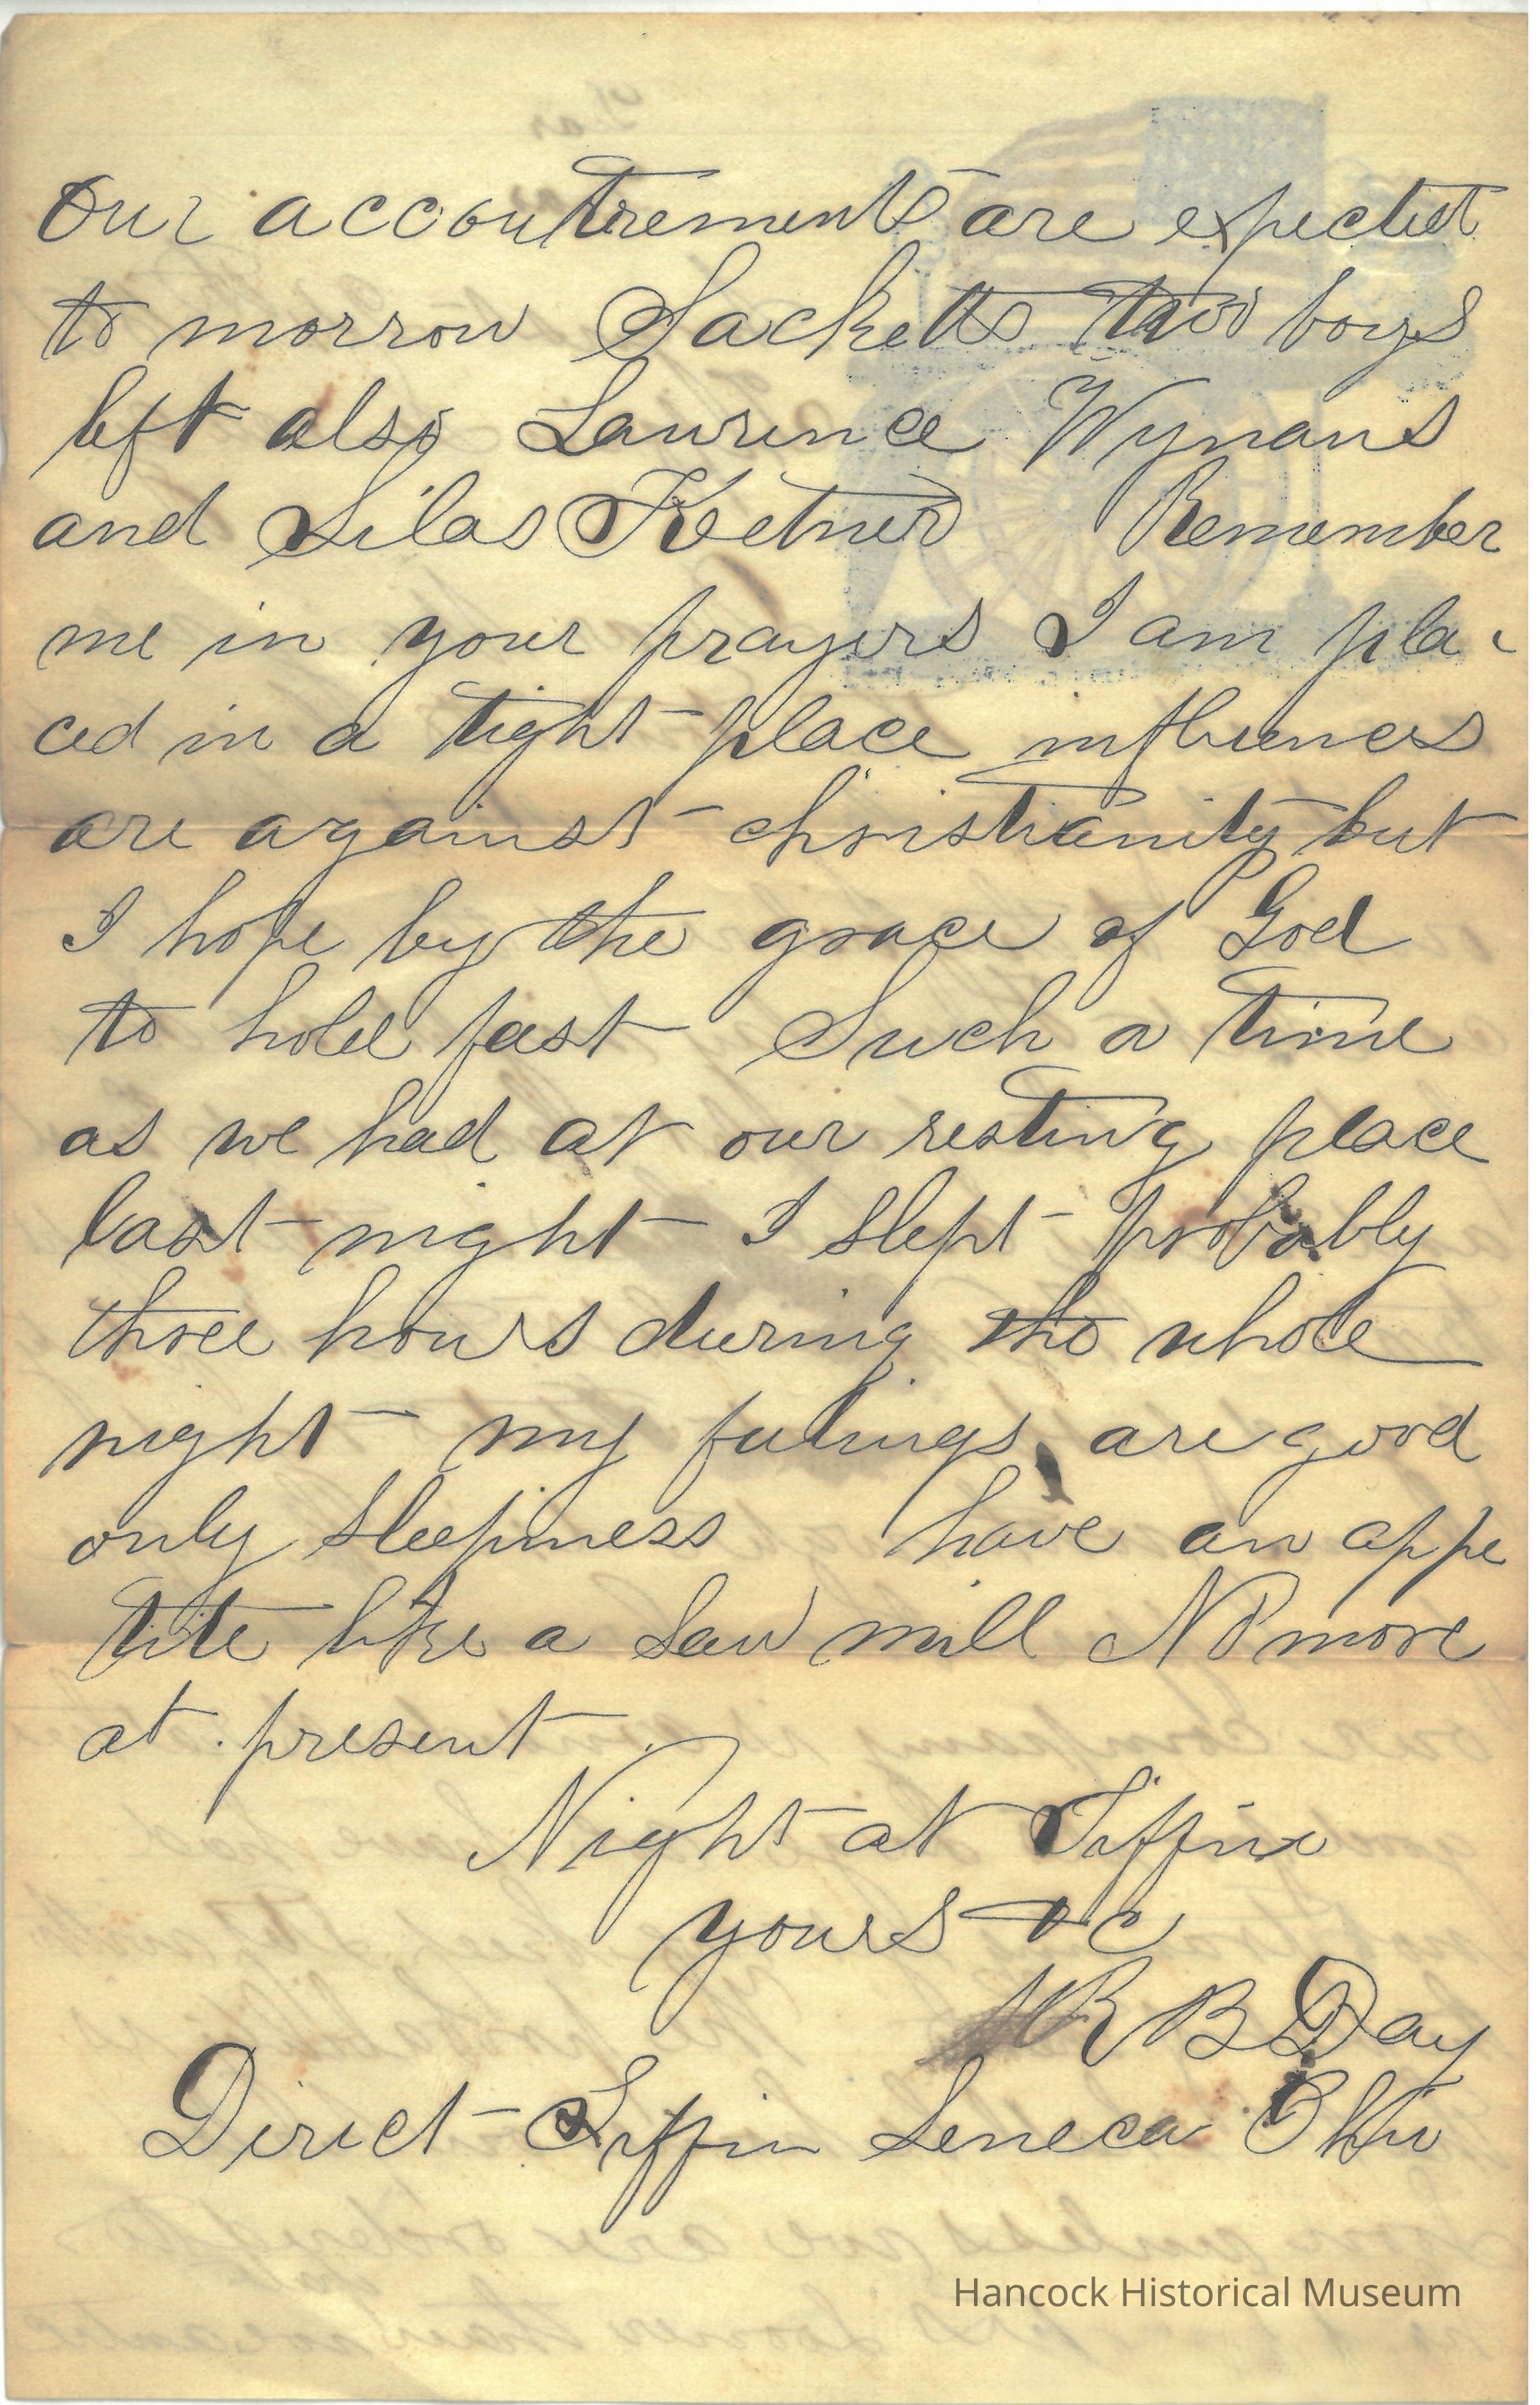 Our accoutrements are expected
to morrow Sacketts two boys
left also Lawrence Wynans
and Silas Ketner Remember
me in your prayers I am pla-
ced in a tight place influences
are against christianity but
I hope by the grace of God
to hold fast Such a time
as we had at our resting place
last night I slept probably
three hours during the whole
night my feelings are good
only sleepiness have an appe
tite like a saw mill No more
at present
Night at Tiffin
yours &c
B Day
Direct Tiffin Seneca Ohio
Hancock Historical Museum